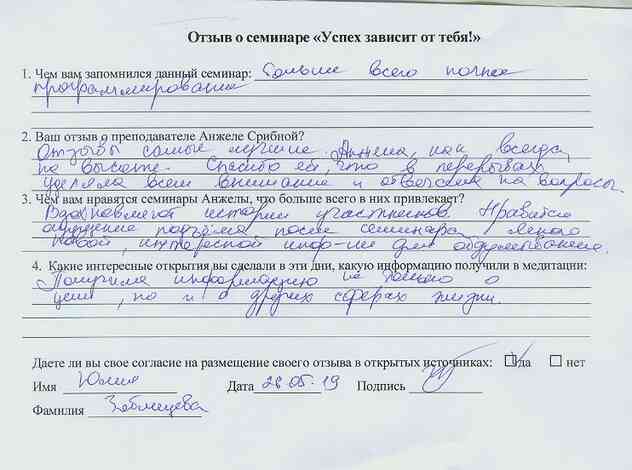 Отзыв о семинаре «Успех зависит от тебя!»
1. Чем вам запомнился данный семинар: Больше всего ночное
программирование
2. Ваш отзыв о преподавателе Анжеле Срибной?
Отзывы самые лучшие. Анжела, как всегда,
на высоте. Спасибо ей, что в перерывах
уделяла всем внимание и отвечала на вопросы.
3. Чем вам нравятся семинары Анжелы, что больше всего в них привлекает?
Вдохновляют истории участников. Нравится
ощущение подъёма после семинара, много
новой, интересной инф-ции для обдумывания.
4. Какие интересные открытия вы сделали в эти дни, какую информацию получили в медитации:
Получила информацию не только о
цели, но и о других сферах жизни.
Даете ли вы свое согласие на размещение своего отзыва в открытых источниках: да нет
Имя Юлия Дата 26.05.19 Подпись
Фамилия